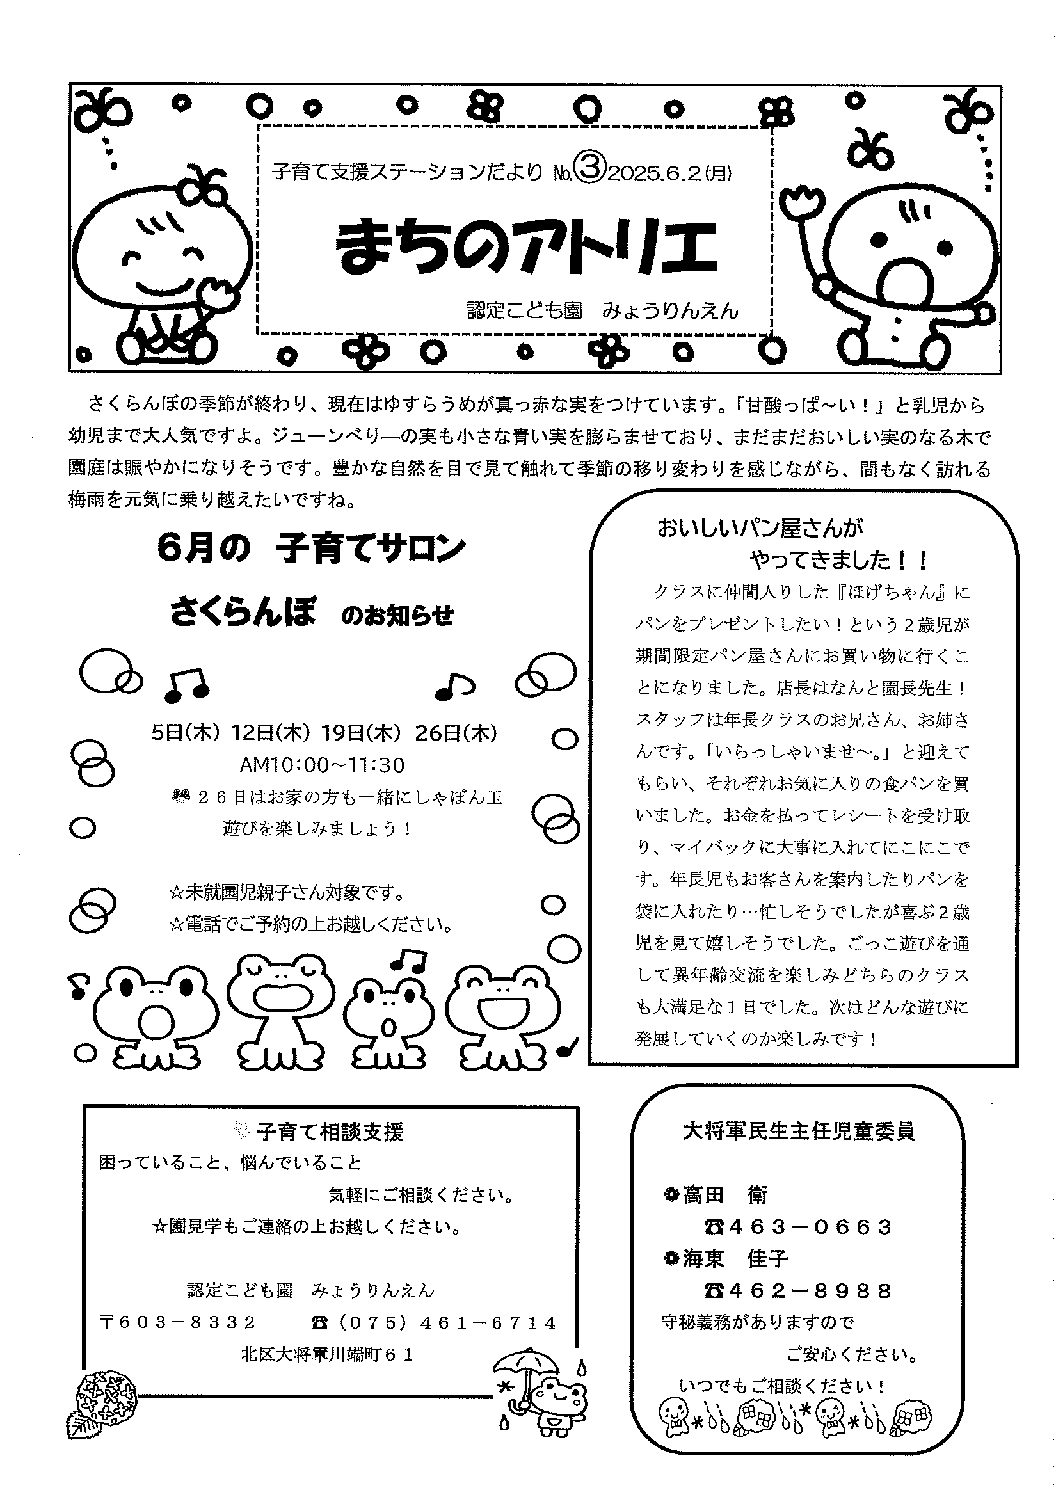 子育て支援ステーションだより №③2025.6.2(月)
まちのアトリエ
認定こども園　みょうりんえん
さくらんぼの季節が終わり、現在はゆすらうめが真っ赤な実をつけています。『甘酸っぱ～い！』と乳児から
幼児まで大人気ですよ。ジューンベリ―の実も小さな青い実を膨らませており、まだまだおいしい実のなる木で
園庭は賑やかになりそうです。豊かな自然を目で見て触れて季節の移り変わりを感じながら、間もなく訪れる
梅雨を元気に乗り越えたいですね。
6月の　子育てサロン
さくらんぼ　のお知らせ
5日(木) 12日(木) 19日(木) 26日(木)
AM10：00～11：30
２６日はお家の方も一緒にしゃぼん玉
遊びを楽しみましょう！
☆未就園児親子さん対象です。
☆電話でご予約の上お越しください。
おいしいパン屋さんが
やってきました！！
クラスに仲間入りした『ほげちゃん』に
パンをプレゼントしたい！という２歳児が
期間限定パン屋さんにお買い物に行くこ
とになりました。店長はなんと園長先生！
スタッフは年長クラスのお兄さん、お姉さ
んです。「いらっしゃいませ～。」と迎えて
もらい、それぞれお気に入りの食パンを買
いました。お金を払ってレシートを受け取
り、マイバックに大事に入れてにこにこで
す。年長児もお客さんを案内したりパンを
袋に入れたり…忙しそうでしたが喜ぶ２歳
児を見て嬉しそうでした。ごっこ遊びを通
して異年齢交流を楽しみどちらのクラス
も大満足な１日でした。次はどんな遊びに
発展していくのか楽しみです！
子育て相談支援
困っていること、悩んでいること
気軽にご相談ください。
☆園見学もご連絡の上お越しください。
認定こども園　みょうりんえん
〒６０３－８３３２　　☎（０７５）４６１－６７１４
北区大将軍川端町６１
大将軍民生主任児童委員
❁高田　衛
☎４６３－０６６３
❁海東　佳子
☎４６２－８９８８
守秘義務がありますので
ご安心ください。
いつでもご相談ください！